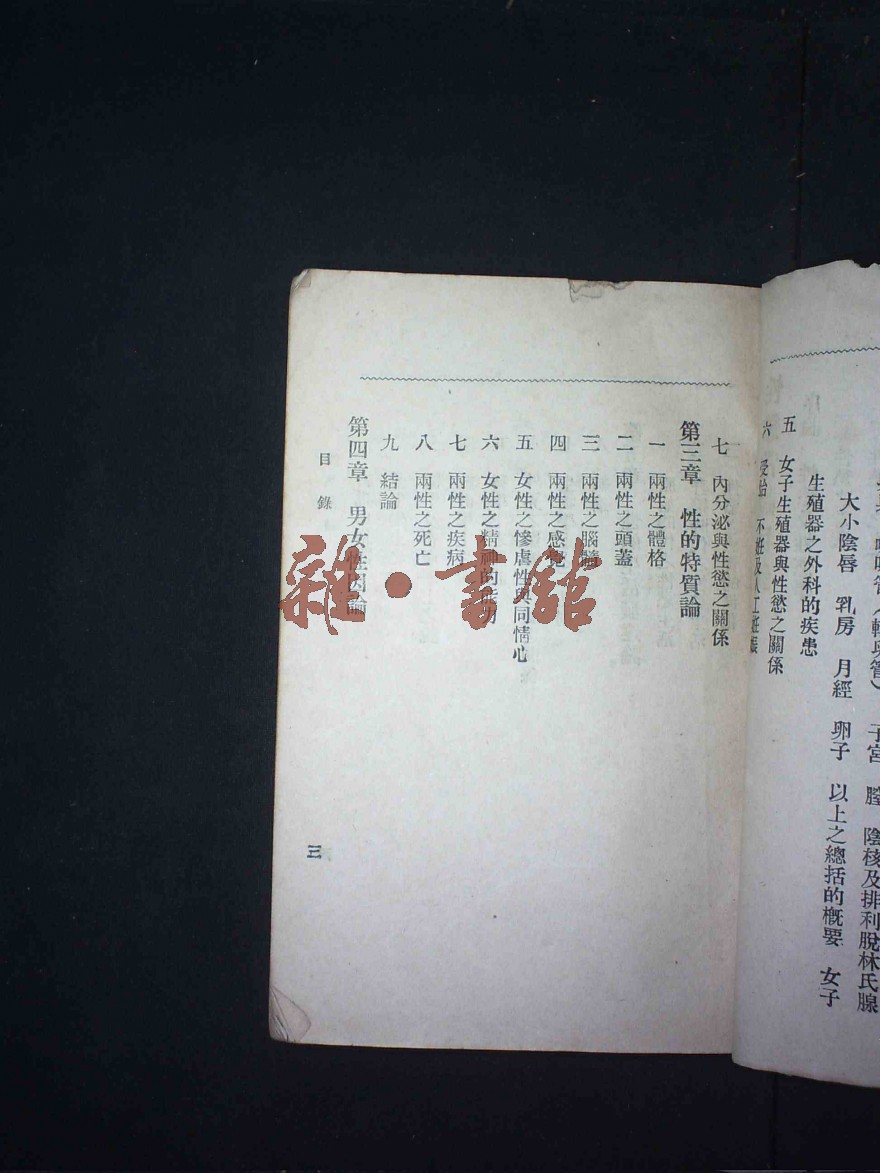 子宮 膣 陰核及排利脫林氏腺
大小陰唇 乳房 月經 卵子 以上之總括的概要 女子
生殖器之外科的疾患
五 女子生殖器與性慾之關係
六 受胎 不姙及人工姙娠
七 內分泌與性慾之關係
第三章 性的特質論
一 兩性之體格
二 兩性之頭蓋
三 兩性之腦髓
四 兩性之感覺
五 女性之慘虐性與同情心
六 女性之精神的能力
七 兩性之疾病
八 兩性之死亡
九 結論
第四章 男女性因論
目錄
三
雜·書館